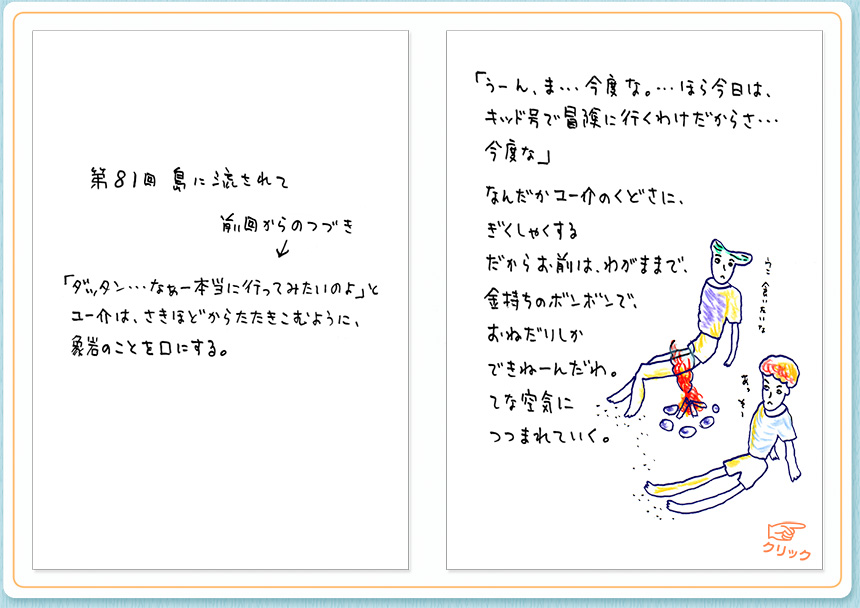 第81回 島に流されて
前回からのつづき
「ダッタン…なぁー本当に行ってみたいのよ」と
ユー介は、さきほどからたたきこむように、
象岩のことを口にする。
「うーん、ま…今度な。…ほら今日は、
キッド号で冒険に行くわけだからさ…
今度な」
なんだかユー介のくどさに、
ぎくしゃくする
だからお前は、わがままで、
金持ちのボンボンで、
おねだりしか
できねーんだわ。
てな空気に
つつまれていく。
あっそー
クリック